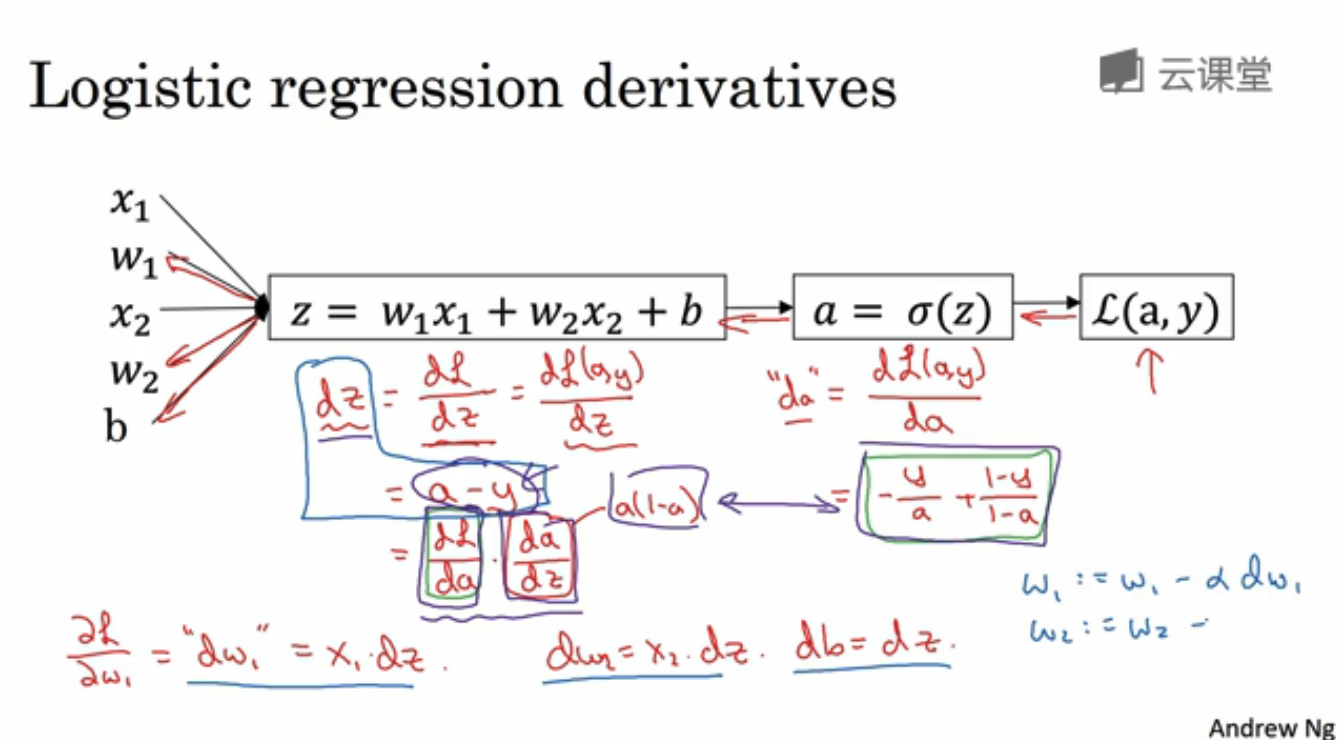 Logistic regression derivatives
云课堂
x₁
w₁
x₂
w₂
b
z = w₁x₁ + w₂x₂ + b
a = σ(z)
ℒ(a, y)
dz = dℒ/dz = dℒ(a,y)/dz
"da" = dℒ(a,y)/da
= a - y
a(1-a)
= -y/a + 1-y/1-a
= dℒ/da · da/dz
w₁ := w₁ - α dw₁
w₂ := w₂ -
∂ℒ/∂w₁ = "dw₁" = x₁·dz. dw₂ = x₂·dz. db = dz.
Andrew Ng